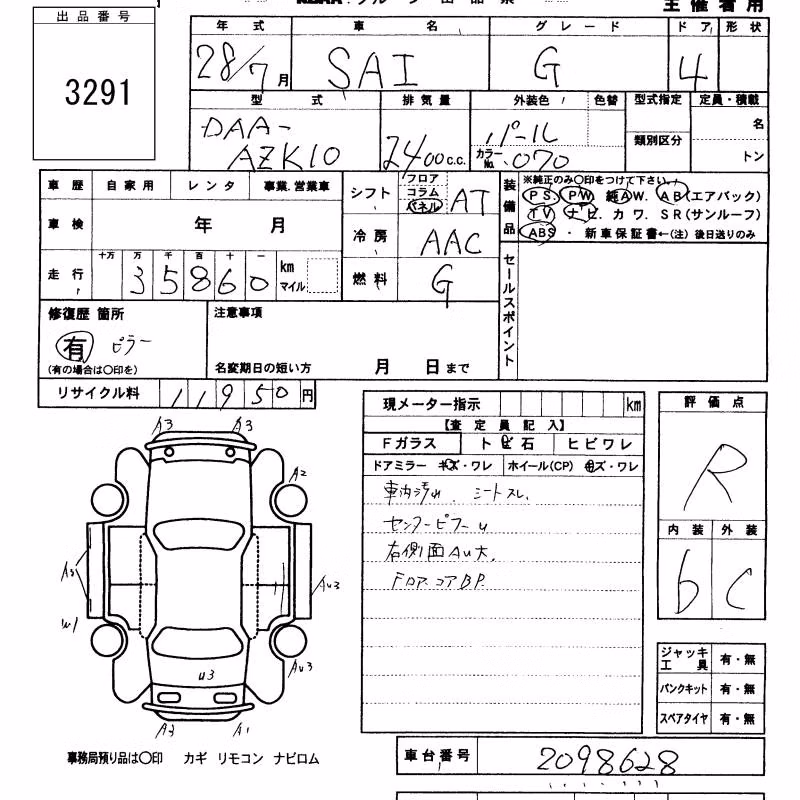 出品番号
3291
主催者用
年式 車名 グレード ドア 形状
28/7月 SAI G 4
型式 排気量 外装色 色替 型式指定 定員・積載
DAA-AZK10 2400c.c. パール
カラーNo. 070
類別区分
名
トン
車歴 自家用 レンタ 事業.営業車
車検 年 月
走行 十万 万 千 百 十 一
35860 km マイル
シフト フロア コラム パネル AT
冷房 AAC
燃料 G
装備品
※純正のみ〇印をつけて下さい
PS. PW 純AW. AB(エアバック)
TV ナビ. カワ. SR(サンルーフ)
ABS ・ 新車保証書←(注) 後日送りのみ
セールスポイント
修復歴 箇所
有 ピラー
(有の場合は〇印を)
注意事項
名変期日の短い方 月 日まで
リサイクル料 11950円
現メーター指示 km
【査定員記入】
Fガラス トビ石 ヒビワレ
ドアミラー キズ・ワレ ホイール(CP) キズ・ワレ
車内汚れ. シートスレ.
センターピラーu
右側面Au大.
Fロアーコア BP.
評価点
R
内装 外装
b C
ジャッキ工具 有・無
パンクキット 有・無
スペアタイヤ 有・無
A3 A3
A2
Au3
W1
Au3
u3
A3 A1
事務局預り品は〇印 カギ リモコン ナビロム
車台番号 2098628